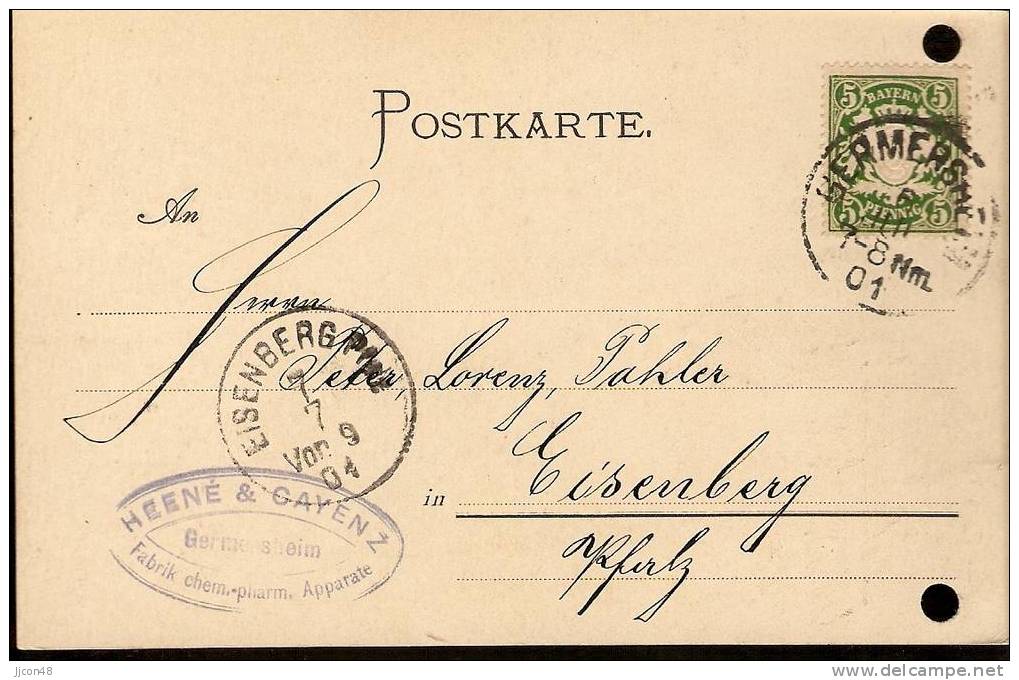 POSTKARTE.
5 BAYERN 5
5 PFENNIG 5
GERMERSHEIM
6
7-8 Nm.
01
An
Herrn
Peter, Lorenz, Pahler
in Eisenberg
Pfalz
EISENBERG Pfalz
7
7
Vor 9
01
HEENÉ & CAYENZ
Germersheim
Fabrik chem.-pharm. Apparate
jjcon48
delcampe.net